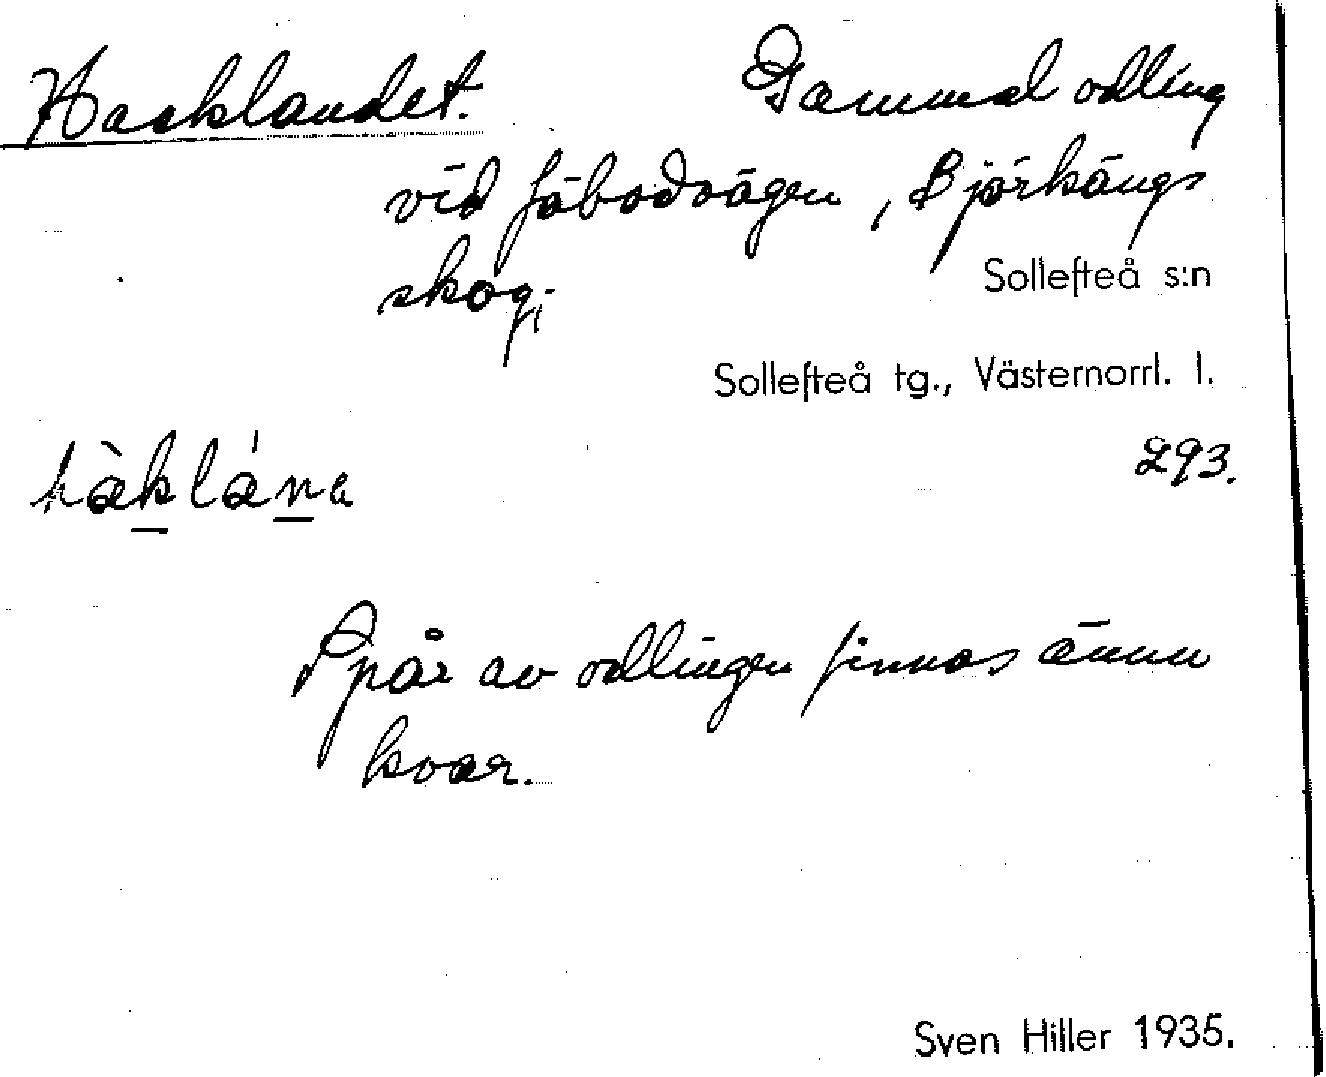 Hacklandet. Gammal odling
vid fäbodvägen, Björkängs
skog,
Sollefteå s:n
Sollefteå tg., Västernorrl. l.
293.
hàkláṉa
Spår av odlingen finnas ännu
kvar.
Sven Hiller 1935.